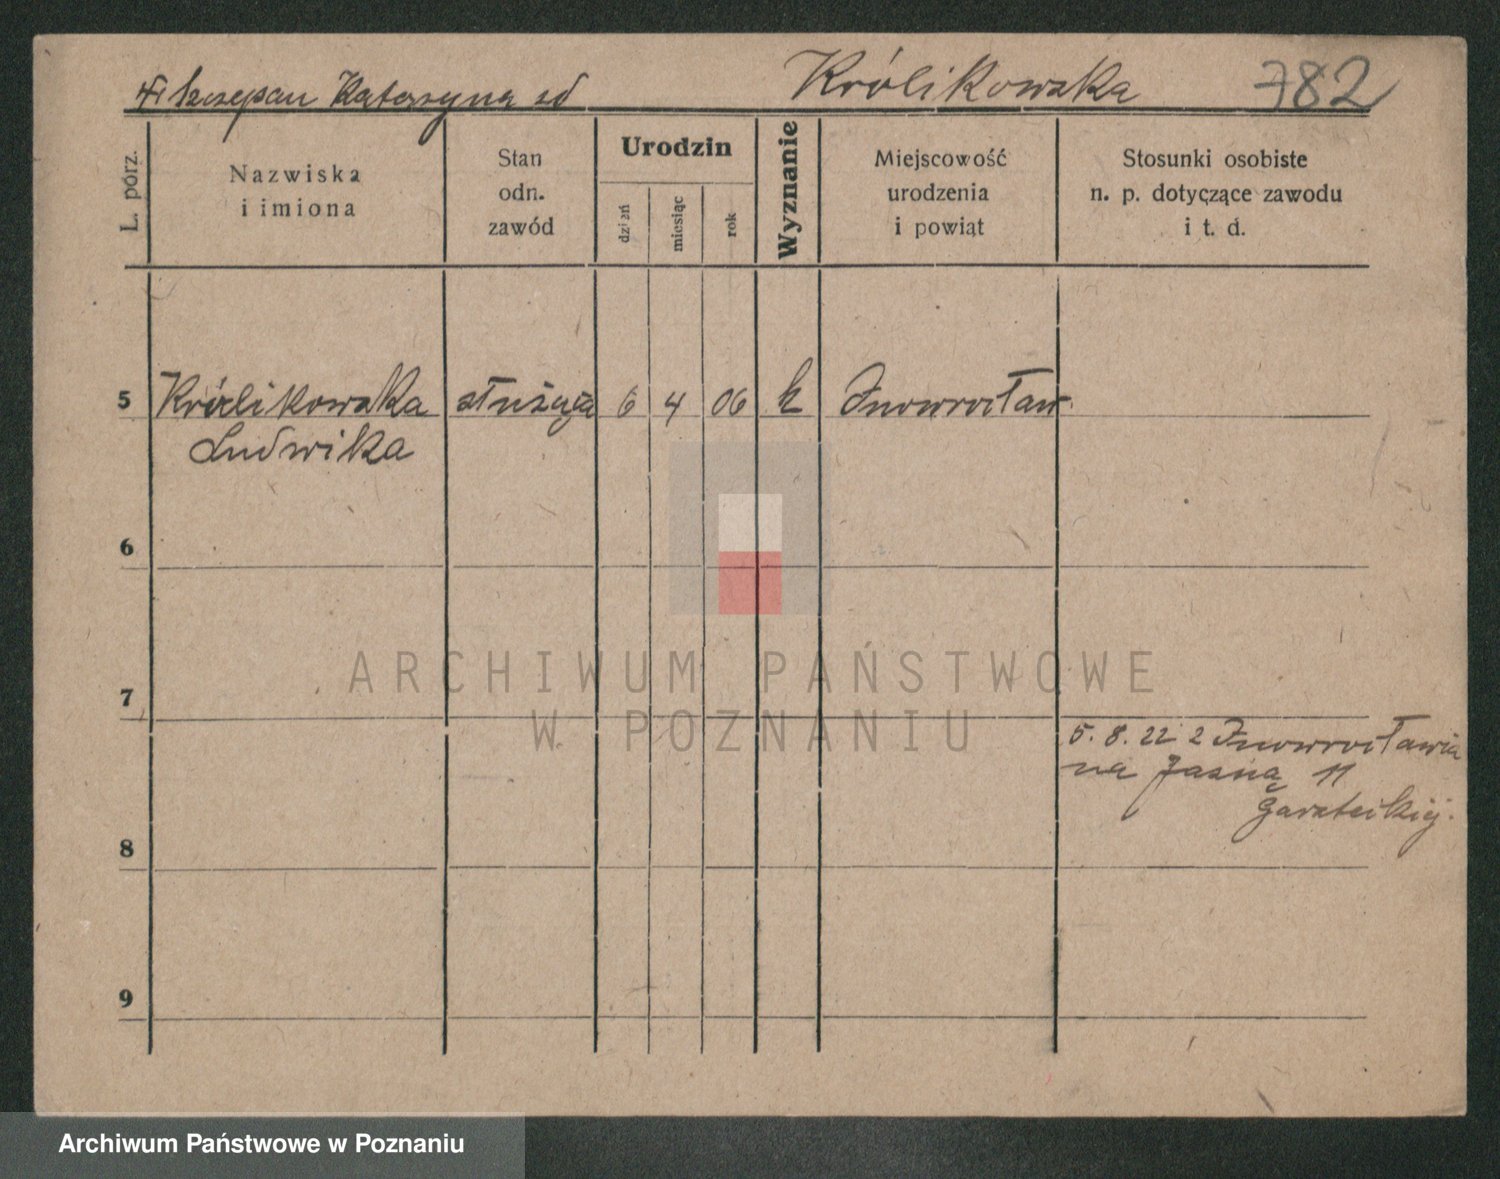 Szczepan Katarzyna zd Królikowska 782
L. pórz.
Nazwiska
i imiona
Stan
odn.
zawód
Urodzin
dzień
miesiąc
rok
Wyznanie
Miejscowość
urodzenia
i powiąt
Stosunki osobiste
n. p. dotyczące zawodu
i t. d.
5 Królikowska służąca 6 4 06 k Inowrocław
Ludwika
6
7
5. 8. 22 z Inowrocławia
na Jasną 11
8
9
ARCHIWUM PAŃSTWOWE
W POZNANIU
Archiwum Państwowe w Poznaniu